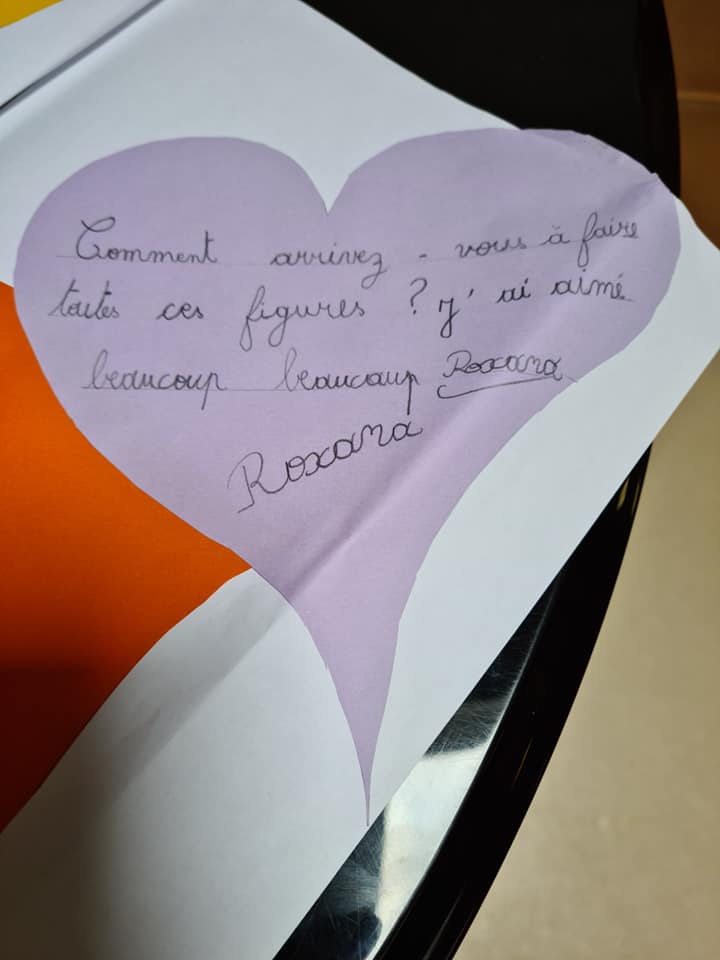 Comment arrivez - vous à faire
toutes ces figures ? j'ai aimé
beaucoup beaucoup Roxana
Roxana